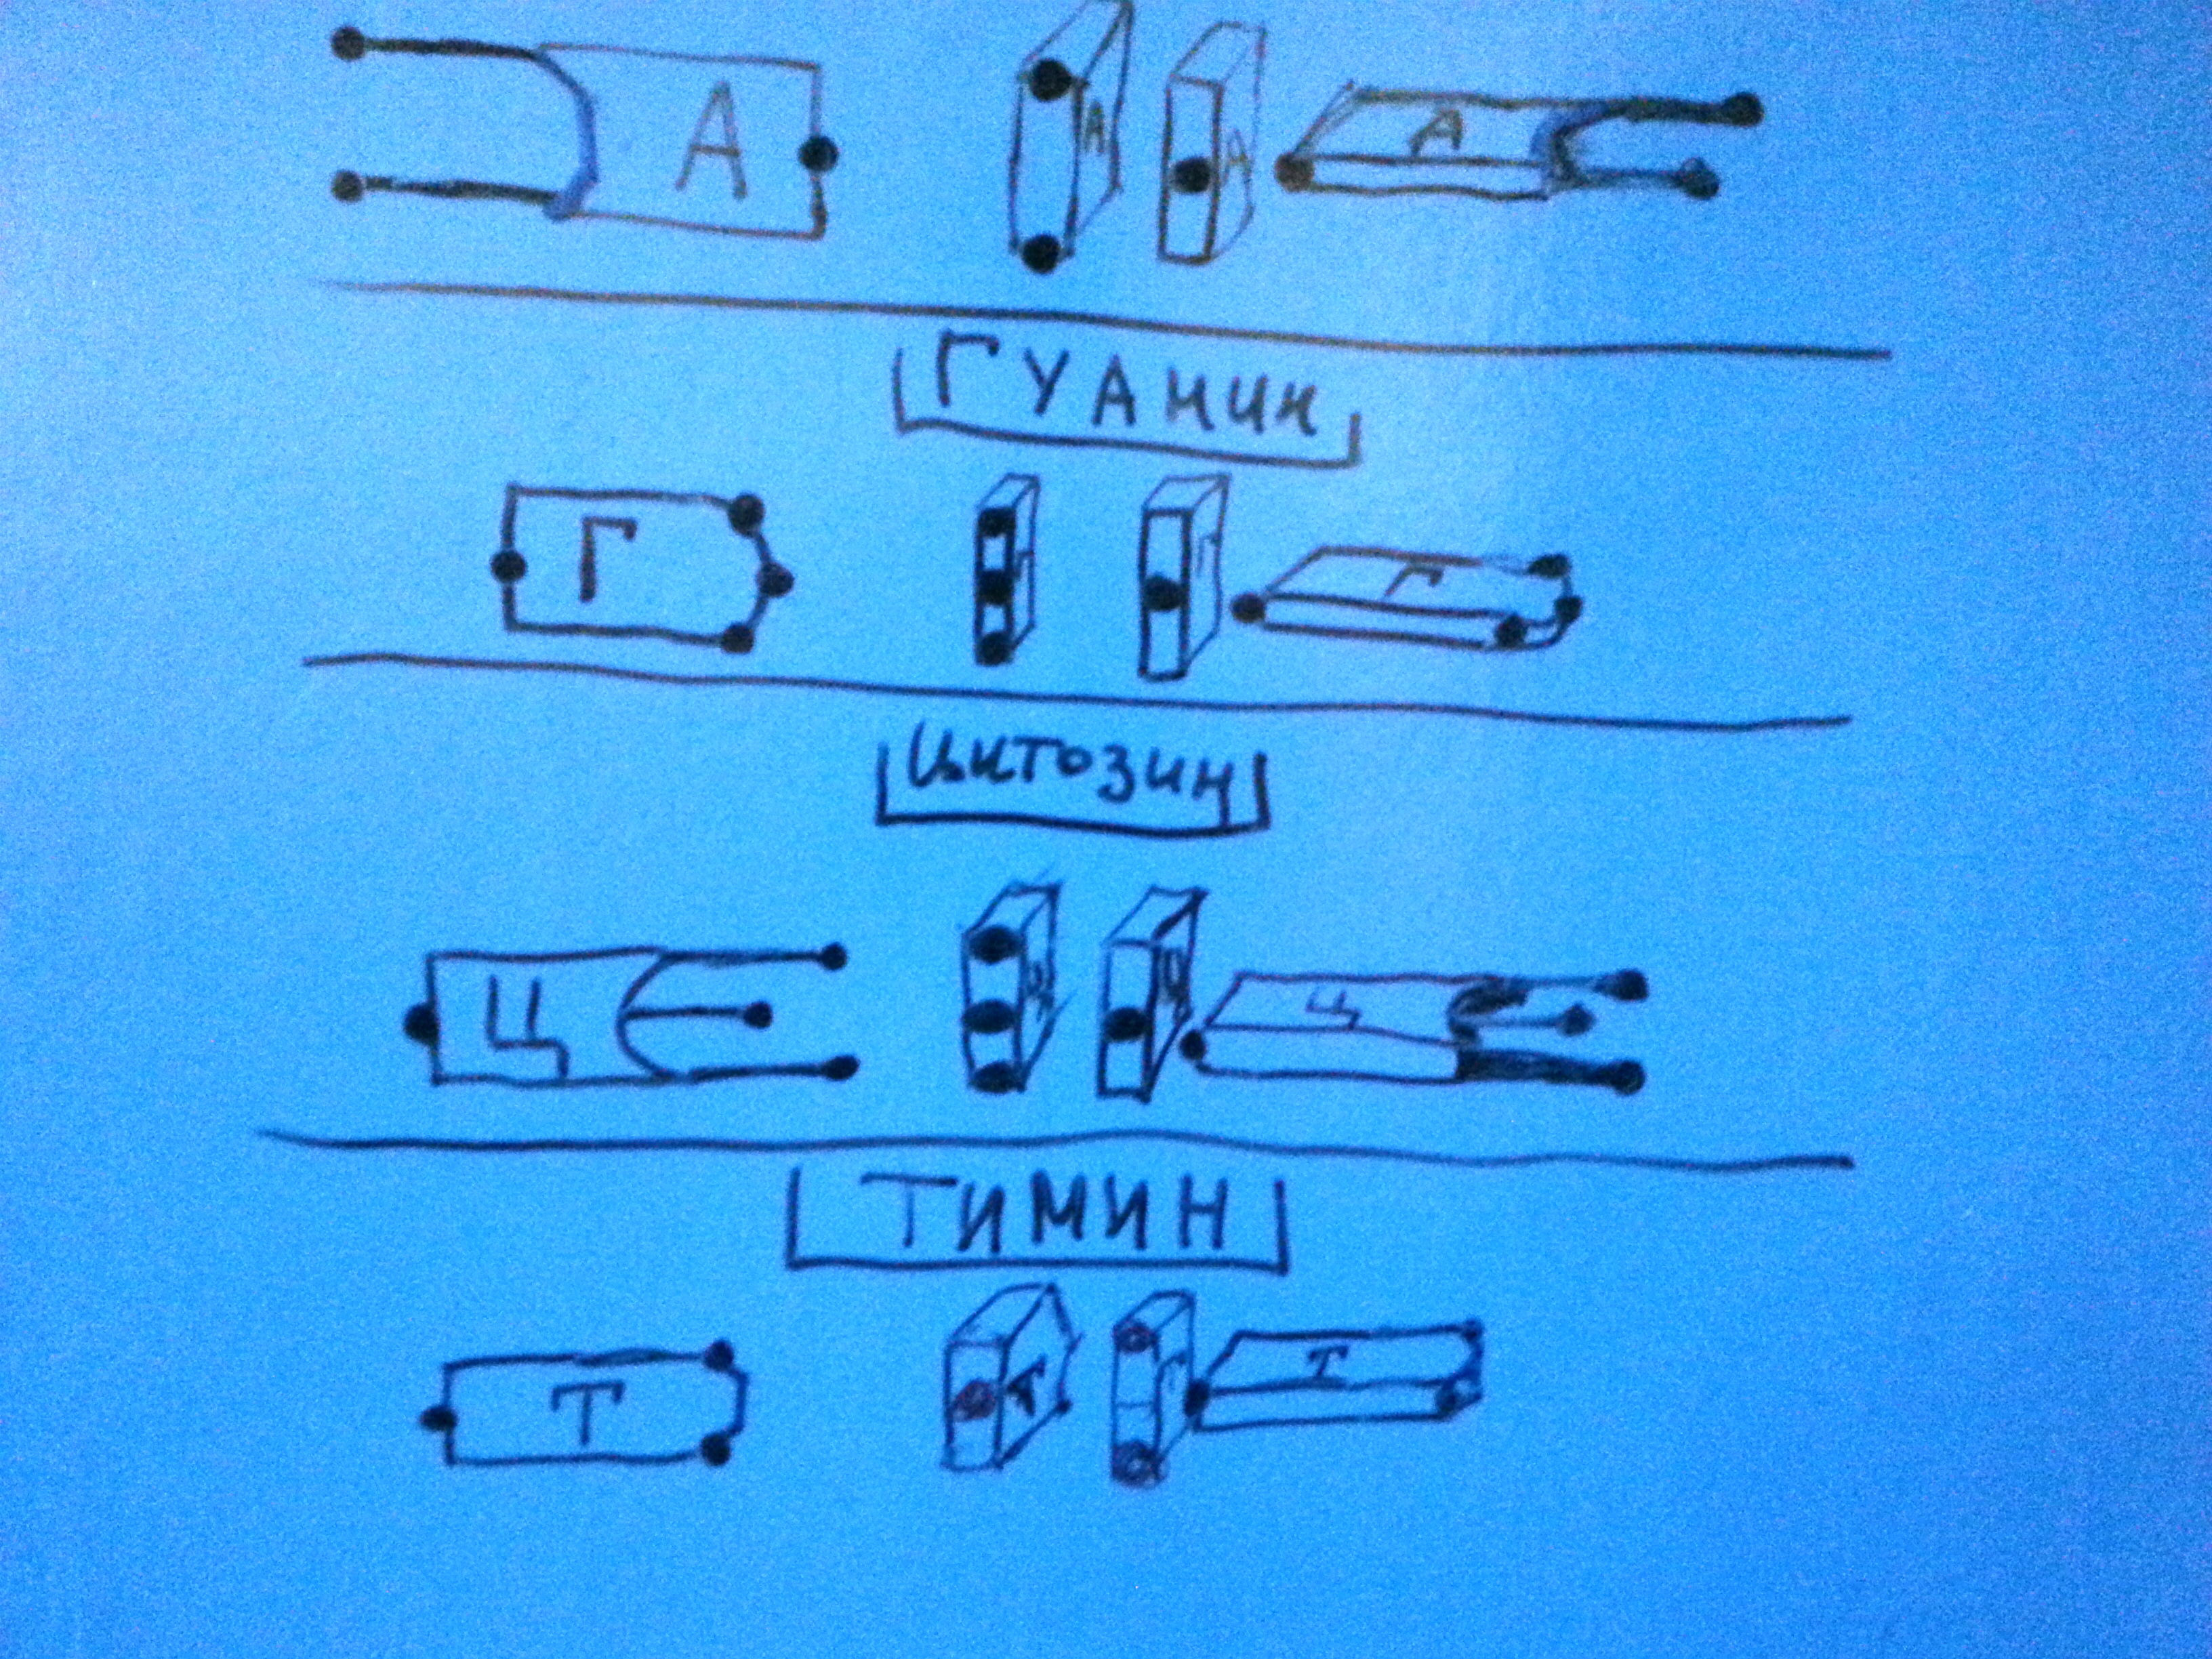 А А А А
ГУАНИН
Г Г Г Г
Цитозин
Ц Ц Ц Ц
ТИМИН
Т Т Т Т